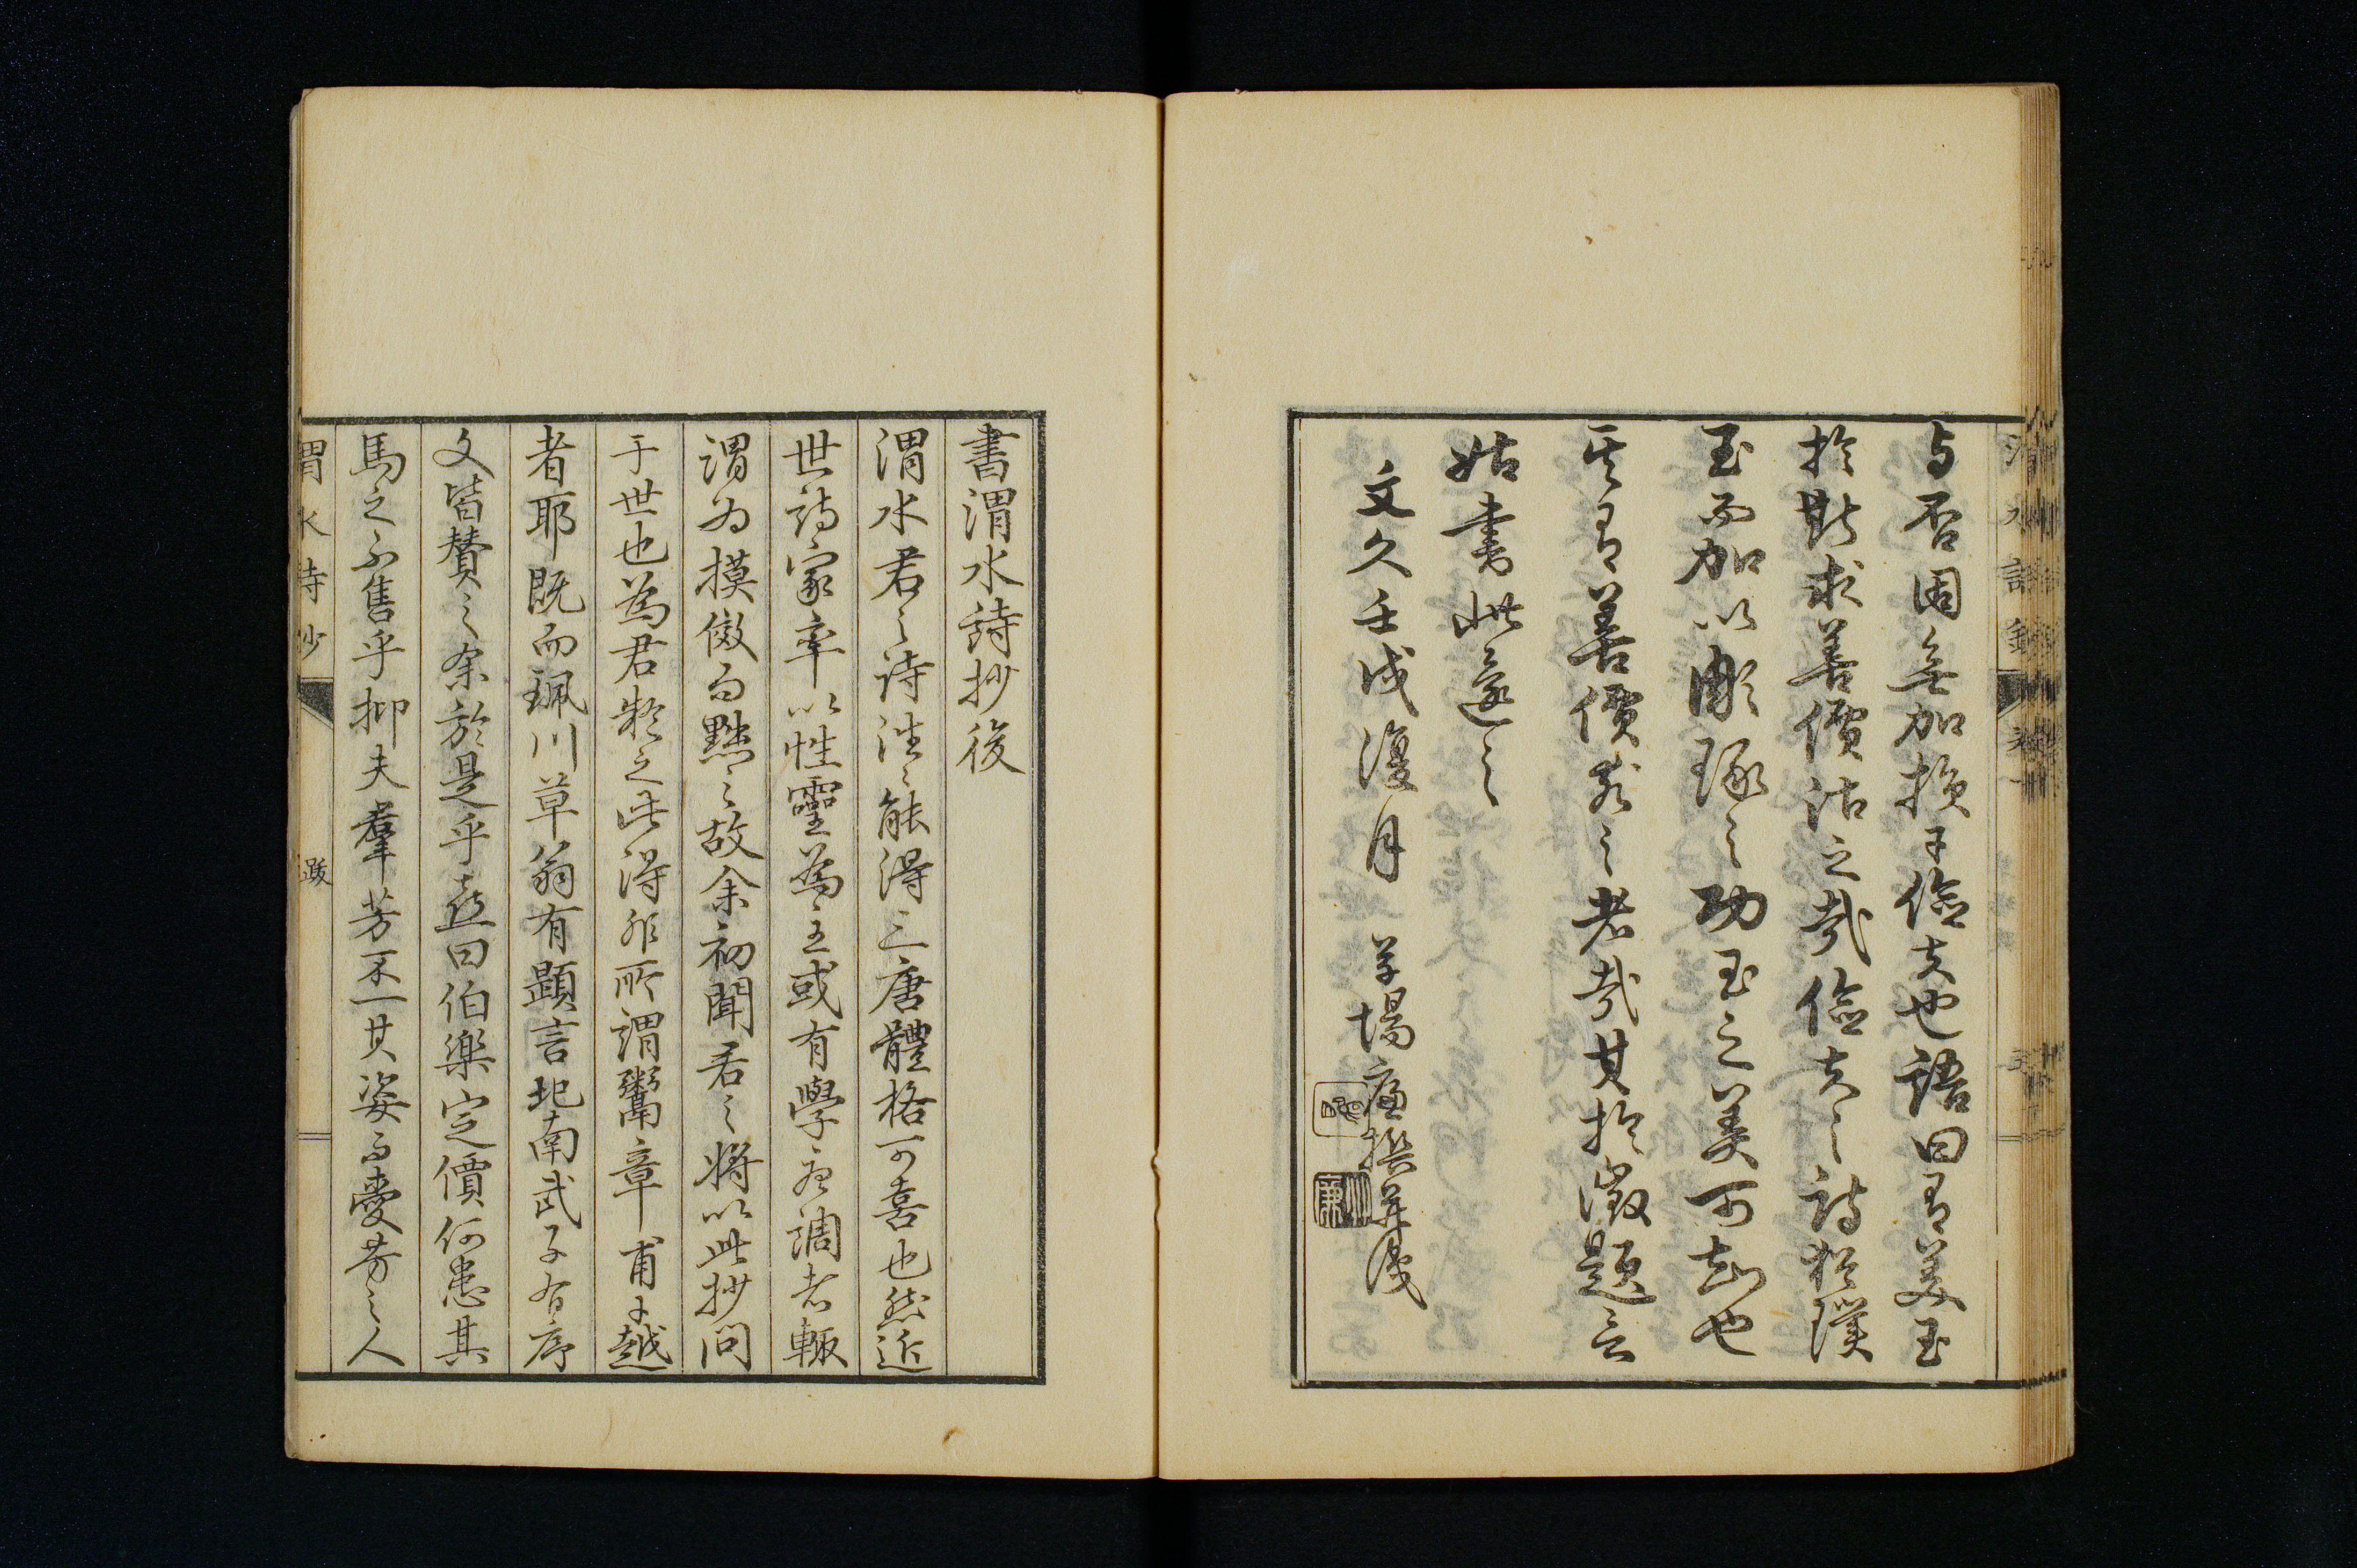 与否固無加損于儉夫也語曰有美玉
於斯求善價沽之哉儉夫之詩猶璞
玉而加以彫琢之功玉之美可知也
其有善價求之者哉其於徵題言
姑書此還之
文久壬戌復月 草場廉撰并識
書渭水詩抄後
渭水君之詩往々能得三唐體格可喜也然近
世詩家率以性靈為主或有學唐調者輙
謂為摸倣而黜之故余初聞君之將以此抄問
于世也為君疑之此得非所謂鬻章甫于越
者耶既而珮川草翁有題言北南武子有序
文皆賛之余於是乎益曰伯樂定價何患其
馬之不售乎抑夫羣芳不一其姿而愛芳之人
渭水詩抄 跋